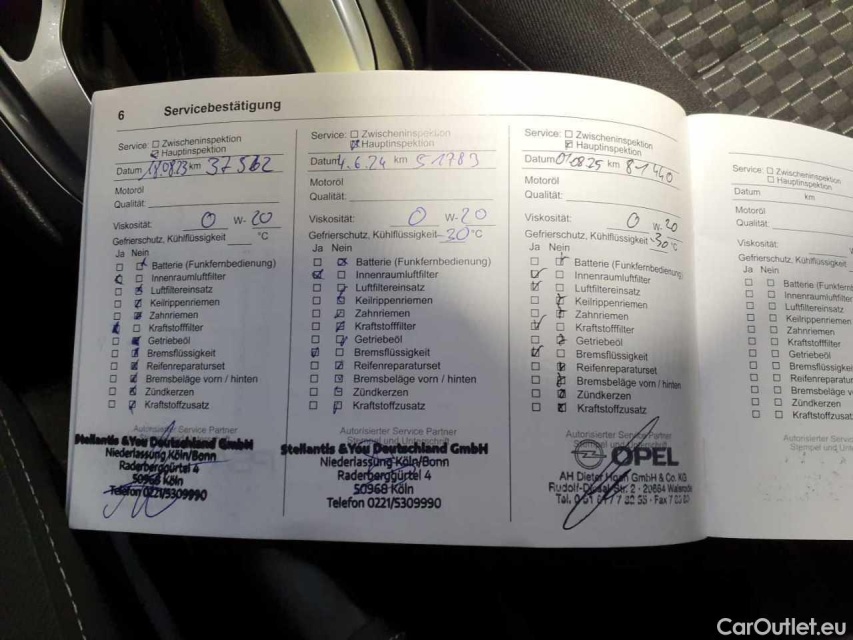 6 Servicebestätigung
Service: Zwischeninspektion
Hauptinspektion
Datum 18.08.23 km 37562
Motoröl
Qualität:
Viskosität: 0 W- 20
Gefrierschutz, Kühlflüssigkeit °C
Ja Nein
Batterie (Funkfernbedienung)
Innenraumluftfilter
Luftfiltereinsatz
Keilrippenriemen
Zahnriemen
Kraftstofffilter
Getriebeöl
Bremsflüssigkeit
Reifenreparaturset
Bremsbeläge vorn / hinten
Zündkerzen
Kraftstoffzusatz
Autorisierter Service Partner
Stellantis &You Deutschland GmbH
Niederlassung Köln/Bonn
Raderberggürtel 4
50968 Köln
Telefon 0221/5309990
Service: Zwischeninspektion
Hauptinspektion
Datum 4.6.24 km 51783
Motoröl
Qualität:
Viskosität: 0 W-20
Gefrierschutz, Kühlflüssigkeit -30°C
Ja Nein
Batterie (Funkfernbedienung)
Innenraumluftfilter
Luftfiltereinsatz
Keilrippenriemen
Zahnriemen
Kraftstofffilter
Getriebeöl
Bremsflüssigkeit
Reifenreparaturset
Bremsbeläge vorn / hinten
Zündkerzen
Kraftstoffzusatz
Autorisierter Service Partner
Stempel und Unterschrift
Stellantis &You Deutschland GmbH
Niederlassung Köln/Bonn
Raderberggürtel 4
50968 Köln
Telefon 0221/5309990
Service: Zwischeninspektion
Hauptinspektion
Datum 01.08.25 km 81440
Motoröl
Qualität:
Viskosität: 0 W-20
Gefrierschutz, Kühlflüssigkeit -30°C
Ja Nein
Batterie (Funkfernbedienung)
Innenraumluftfilter
Luftfiltereinsatz
Keilrippenriemen
Zahnriemen
Kraftstofffilter
Getriebeöl
Bremsflüssigkeit
Reifenreparaturset
Bremsbeläge vorn / hinten
Zündkerzen
Kraftstoffzusatz
Autorisierter Service Partner
OPEL
AH Dieter GmbH & Co. KG
Rudolf-Diesel-Str. 2 - 29664 Walsrode
Service: Zwischeninspektion
Hauptinspektion
Datum km
Motoröl
Qualität:
Viskosität:
Gefrierschutz, Kühlflüssigkeit
Ja Nein
Batterie (Funkfernb
Innenraumluftfilter
Luftfiltereinsatz
Keilrippenriemen
Zahnriemen
Kraftstofffilter
Getriebeöl
Bremsflüssigkei
Reifenreparatu
Bremsbeläge v
Zündkerzen
Kraftstoffzusat
Autorisierter Service
Stempel und Unte
CarOutlet.eu